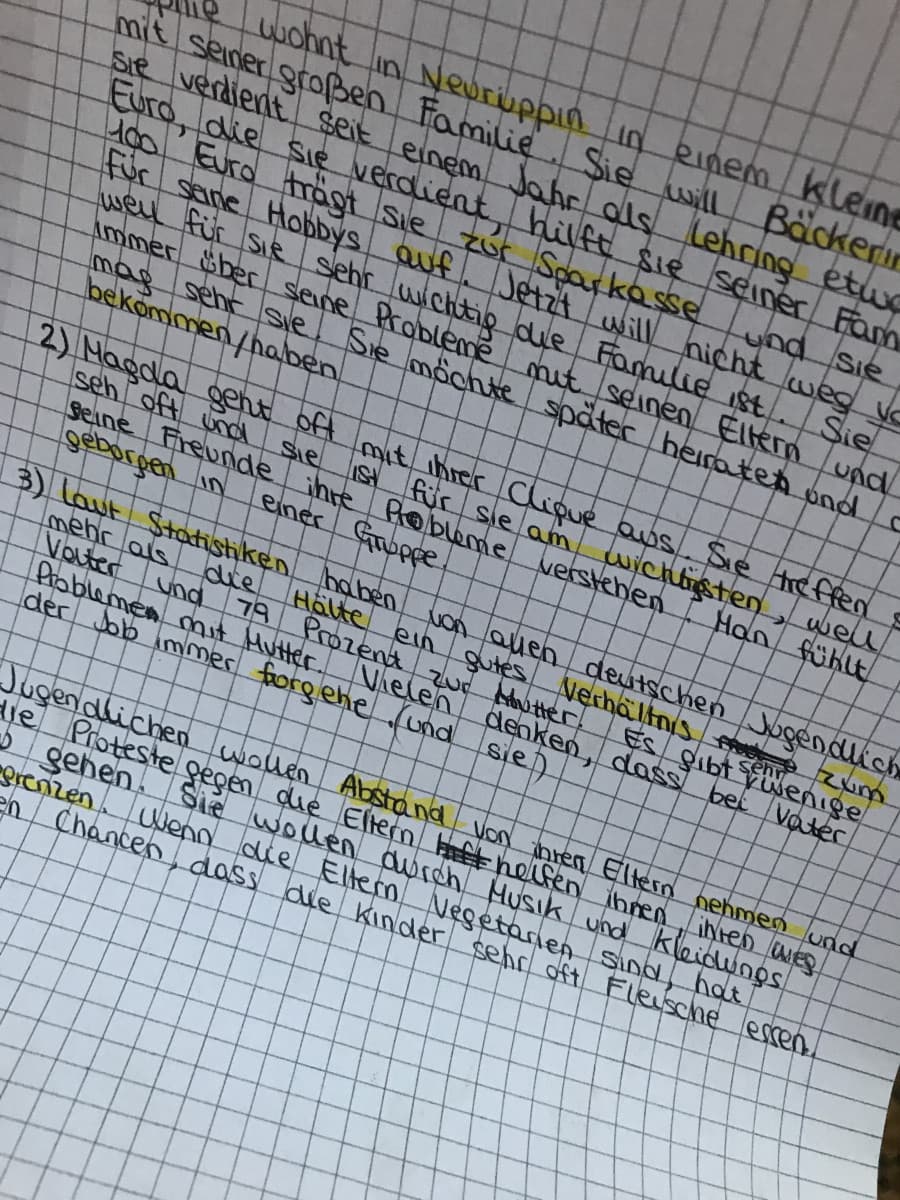 wohnt in Neuruppin in einem kleine
mit seiner großen Familie. Sie will Bäckerin
sie verdient seit einem Jahr als Lehring etwa
Euro, die sie verdient, hilft sie seiner Fam
100 Euro trägt sie zur Sparkasse und sie
für seine Hobbys auf. Jetzt will nicht weg
weil für sie sehr wichtig die Familie ist. Sie
immer über seine Probleme mit seinen Eltern und
mag sehr sie! Sie möchte später heiraten und
bekommen/haben
2) Magda geht oft mit ihrer Clique aus. Sie treffen
seh oft und sie ist für sie am wichtigsten, weil
seine Freunde ihre Probleme verstehen. Man fühlt
geborgen in einer Gruppe.
3) Laut Statistiken haben von allen deutschen Jugendlich
mehr als die Hälte ein gutes Verhältnis zum
Vater und 79 Prozent zur Mutter. Es gibt sehr wenige
Problemen mit Mutter. Vielen denken, dass bei Vater
der Job immer forgehe. (und sie)
Jugendlichen wollen Abstand von ihren Eltern nehmen und
die Proteste gegen die Eltern helfen ihnen, ihren weg
gehen. Sie wollen durch Musik und kleidungs
gerenzen. Wenn die Eltern Vegetarien sind, hat
en Chancen, dass die Kinder sehr oft Fleische essen.